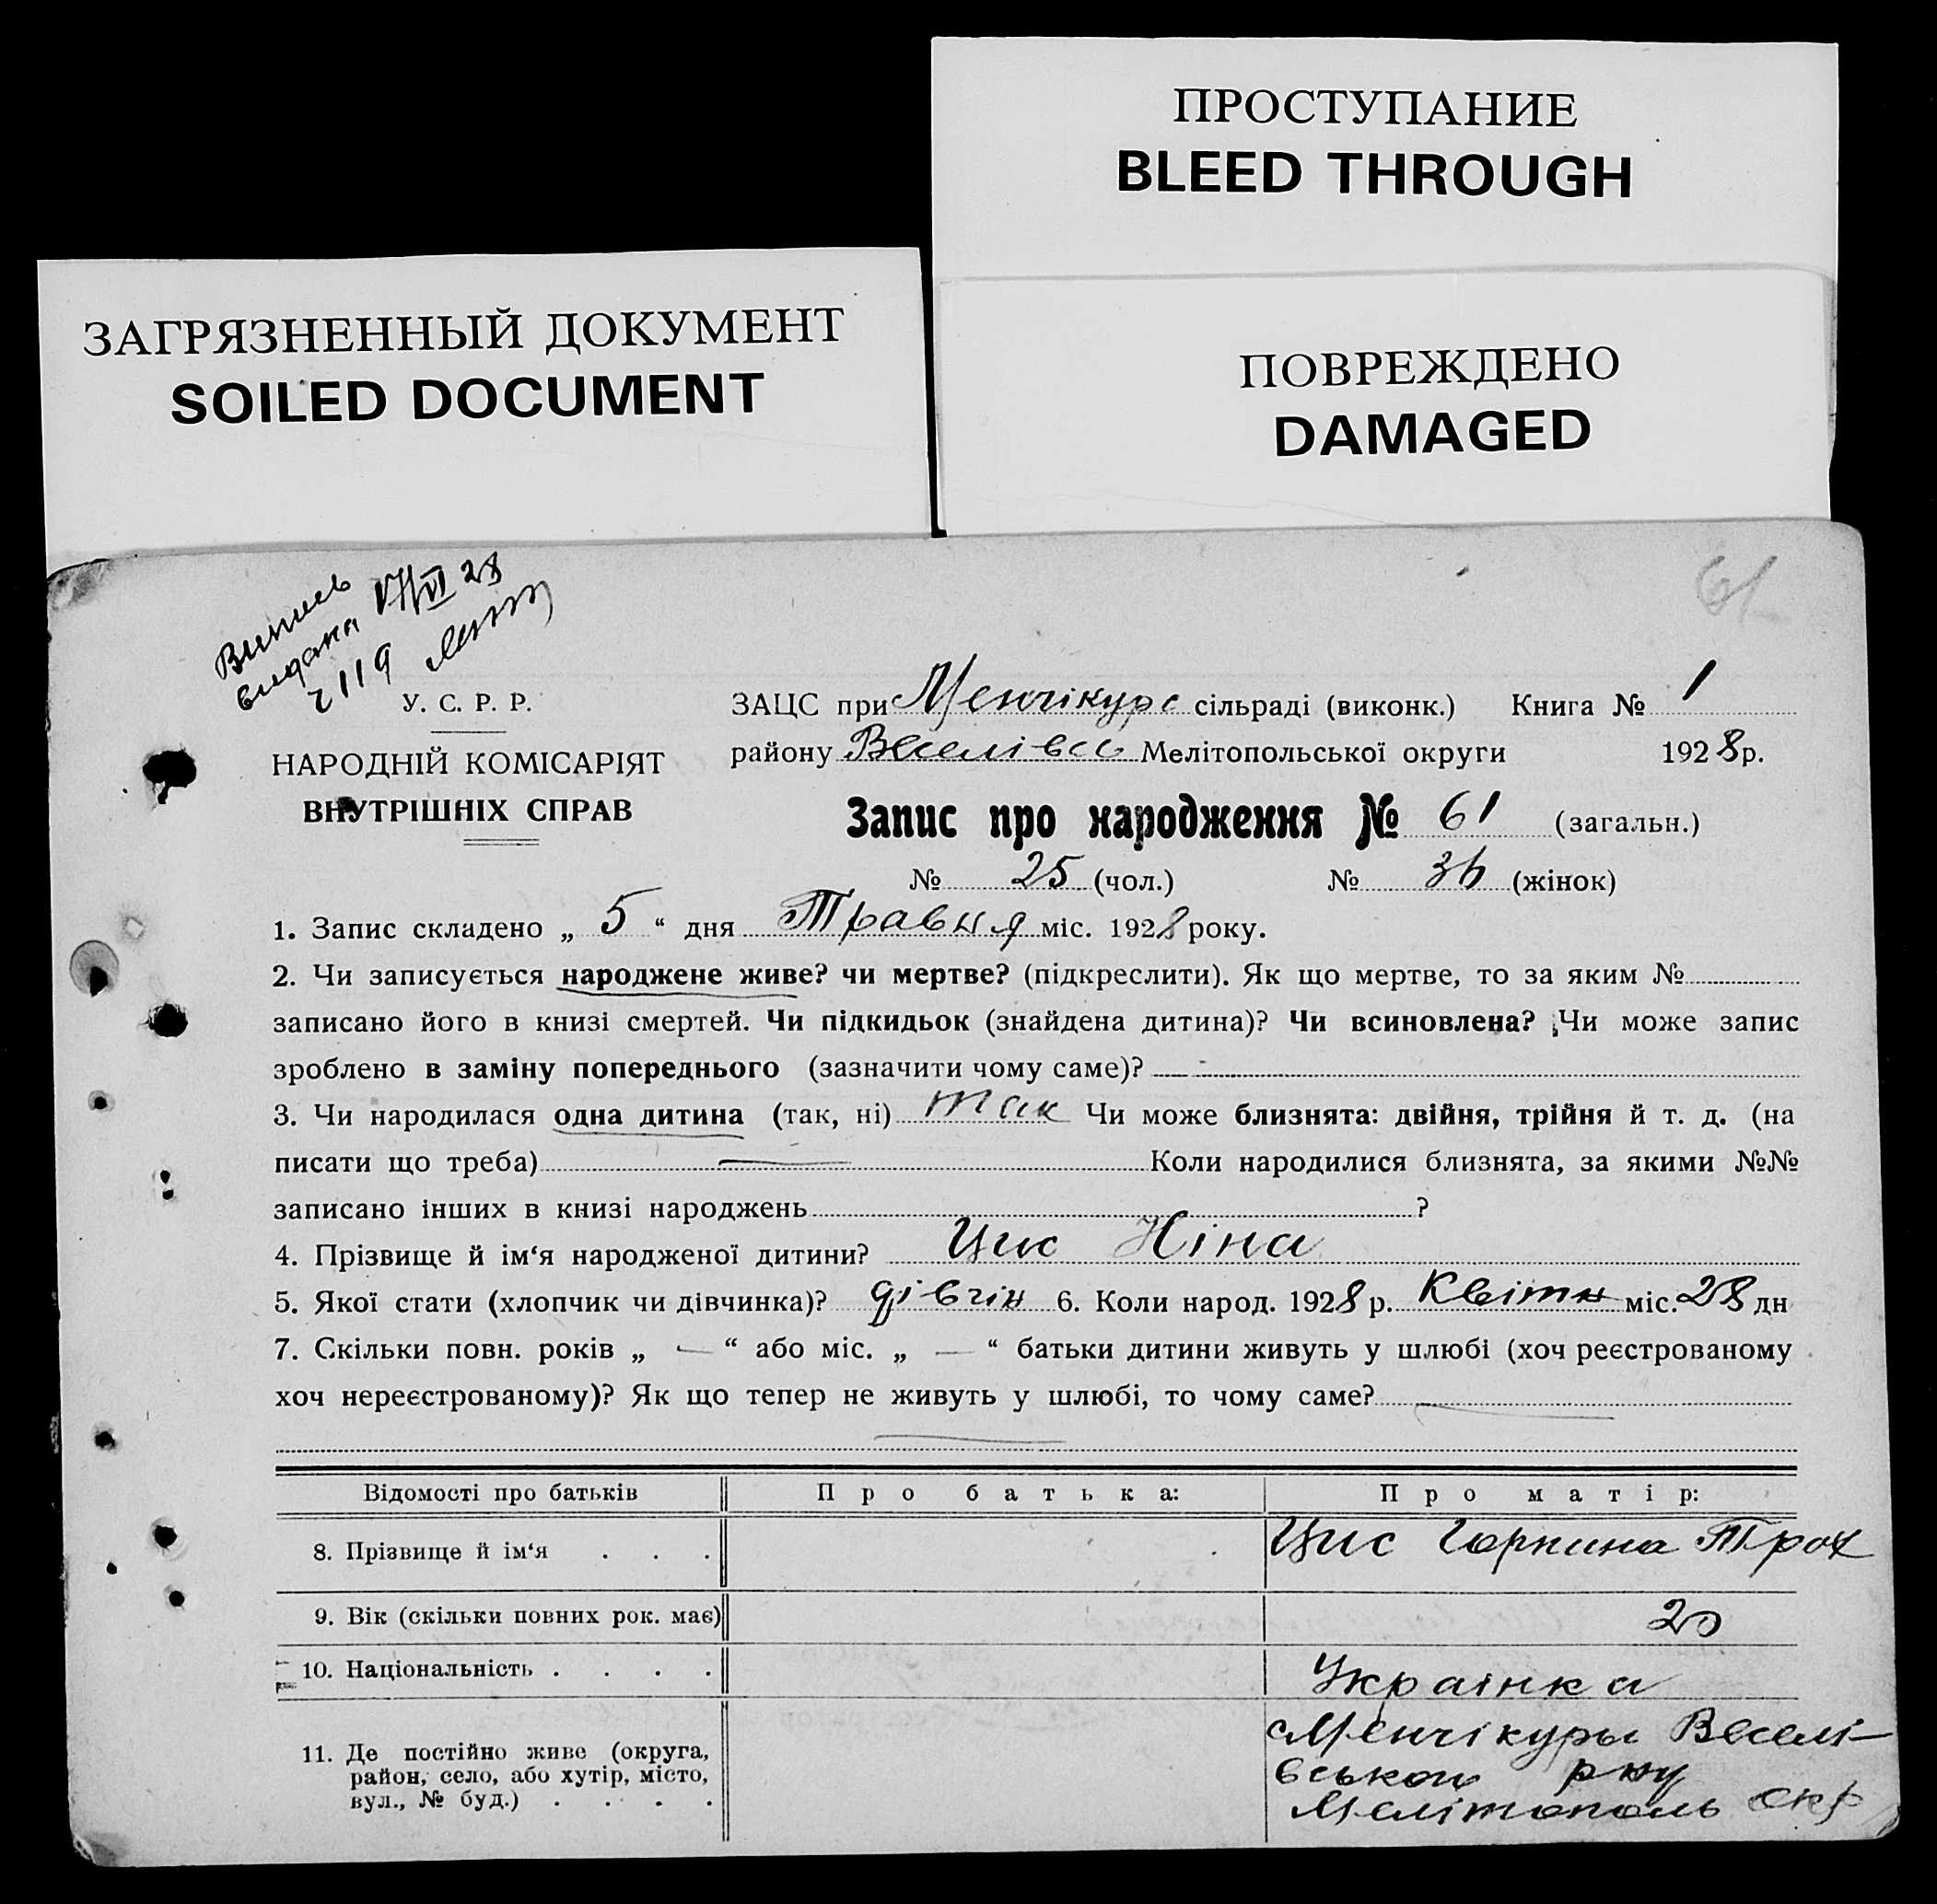 ПРОСТУПАНИЕ
BLEED THROUGH
ЗАГРЯЗНЕННЫЙ ДОКУМЕНТ
SOILED DOCUMENT
ПОВРЕЖДЕНО
DAMAGED
61
Випись
видана VII/VI 28
ч 119
У. С. Р. Р.
НАРОДНІЙ КОМІСАРІЯТ
ВНУТРІШНІХ СПРАВ
ЗАЦС при Менчікурс сільраді (виконк.) Книга № 1
району Веселівсь Мелітопольської округи 1928 р.
Запис про народження № 61 (загальн.)
№ 25 (чол.) № 36 (жінок)
1. Запис складено „ 5 “ дня Травня міс. 1928 року.
2. Чи записується народжене живе? чи мертве? (підкреслити). Як що мертве, то за яким №
записано його в книзі смертей. Чи підкидьок (знайдена дитина)? Чи всиновлена? Чи може запис
зроблено в заміну попереднього (зазначити чому саме)? —
3. Чи народилася одна дитина (так, ні) так Чи може близнята: двійня, трійня й т. д. (на
писати що треба) — Коли народилися близнята, за якими №№
записано інших в книзі народжень ?
4. Прізвище й ім‘я народженої дитини? Цис Ніна
5. Якої стати (хлопчик чи дівчинка)? дівчін 6. Коли народ. 1928 р. Квітн міс. 28 дн
7. Скільки повн. років „ — “ або міс. „ — “ батьки дитини живуть у шлюбі (хоч реєстрованому
хоч нереєстрованому)? Як що тепер не живуть у шлюбі, то чому саме? —
Відомості про батьків Про батька: Про матір:
8. Прізвище й ім‘я . . . Цис Горпина Трох
9. Вік (скільки повних рок. має) 20
10. Національність . . . . Українка
11. Де постійно живе (округа,
район, село, або хутір, місто,
вул., № буд.) . . . .
Менчікуры Веселі-
вського рну
Мелітополь окр